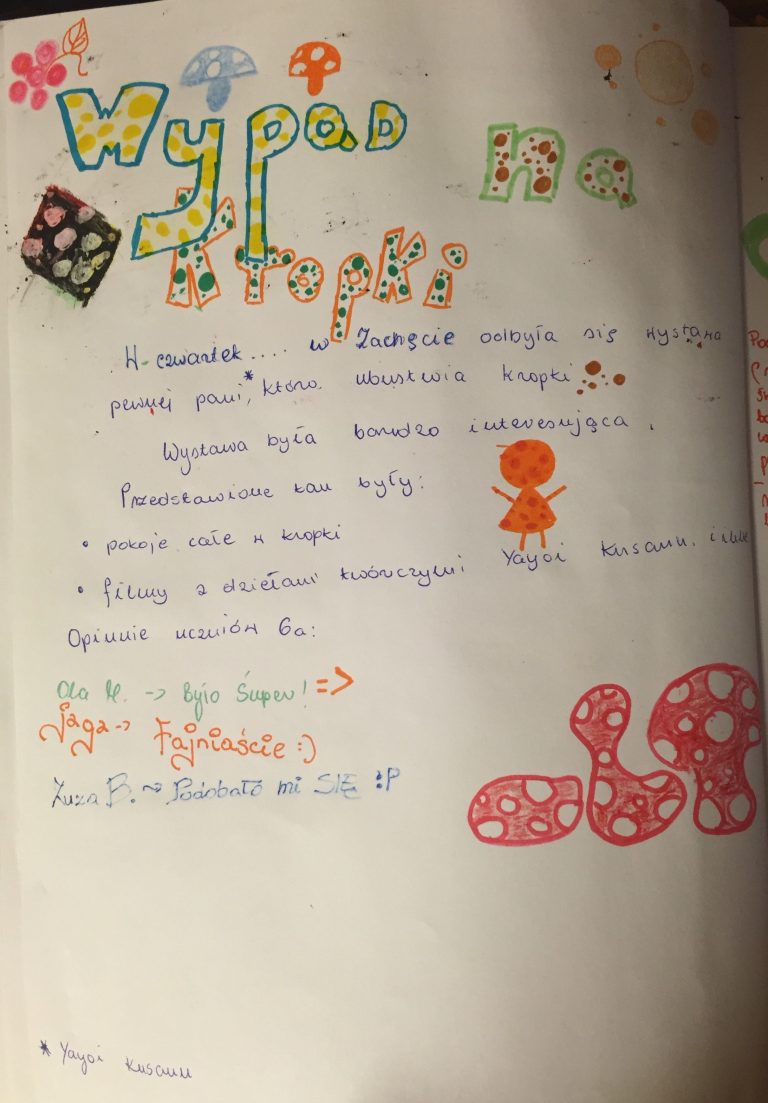 Wypad na
Kropki
W czwartek.... w Zachęcie odbyła się wystawa
pewnej pani*, która ubustwia kropki
Wystawa była bardzo interesująca.
Przedstawione tam były:
• pokoje całe w kropki
• filmy z dziełami twórczymi Yayoi Kusamu. i inne
Opinnie uczniów 6a:
Ola M. -> Było Super! =>
Jaga -> Fajniaście :)
Zuza B. ~> Podobało mi SIĘ :P
* Yayoi Kusamu